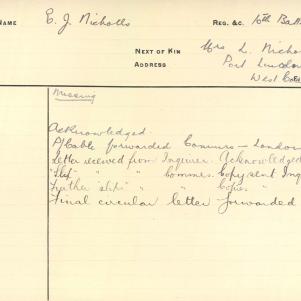 NAME E. J. Nicholls REG. &C. 10th Batt
NEXT OF KIN Mrs L. Nicho
ADDRESS Port Lincoln
West Co
Missing
Acknowledged.
P/Cable forwarded Commrs — London
Letter received from Inquirer. Acknowledged
"Slip" " " Commrs. Copy sent Inq
Further "slips" " " Copies "
Final circular letter forwarded